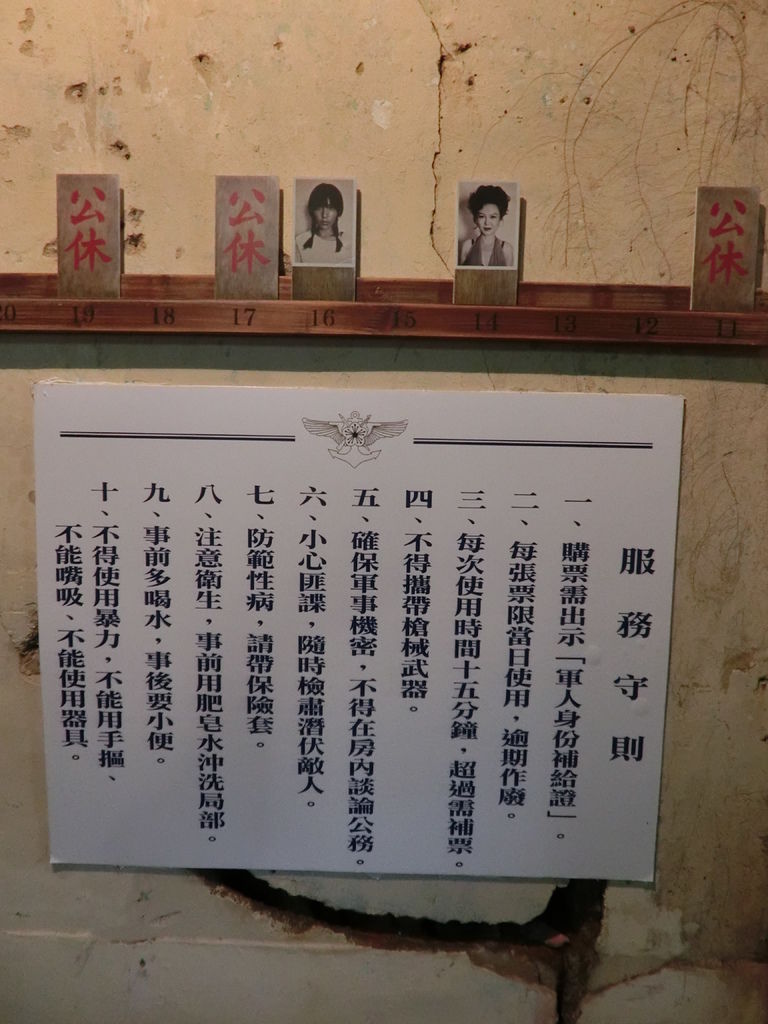 公休
公休
公休
20 19 18 17 16 15 14 13 12 11
服務守則
一、購票需出示「軍人身份補給證」。
二、每張票限當日使用，逾期作廢。
三、每次使用時間十五分鐘，超過需補票。
四、不得攜帶槍械武器。
五、確保軍事機密，不得在房內談論公務。
六、小心匪諜，隨時檢肅潛伏敵人。
七、防範性病，請帶保險套。
八、注意衛生，事前用肥皂水沖洗局部。
九、事前多喝水，事後要小便。
十、不得使用暴力，不能用手摳、
不能嘴吸、不能使用器具。